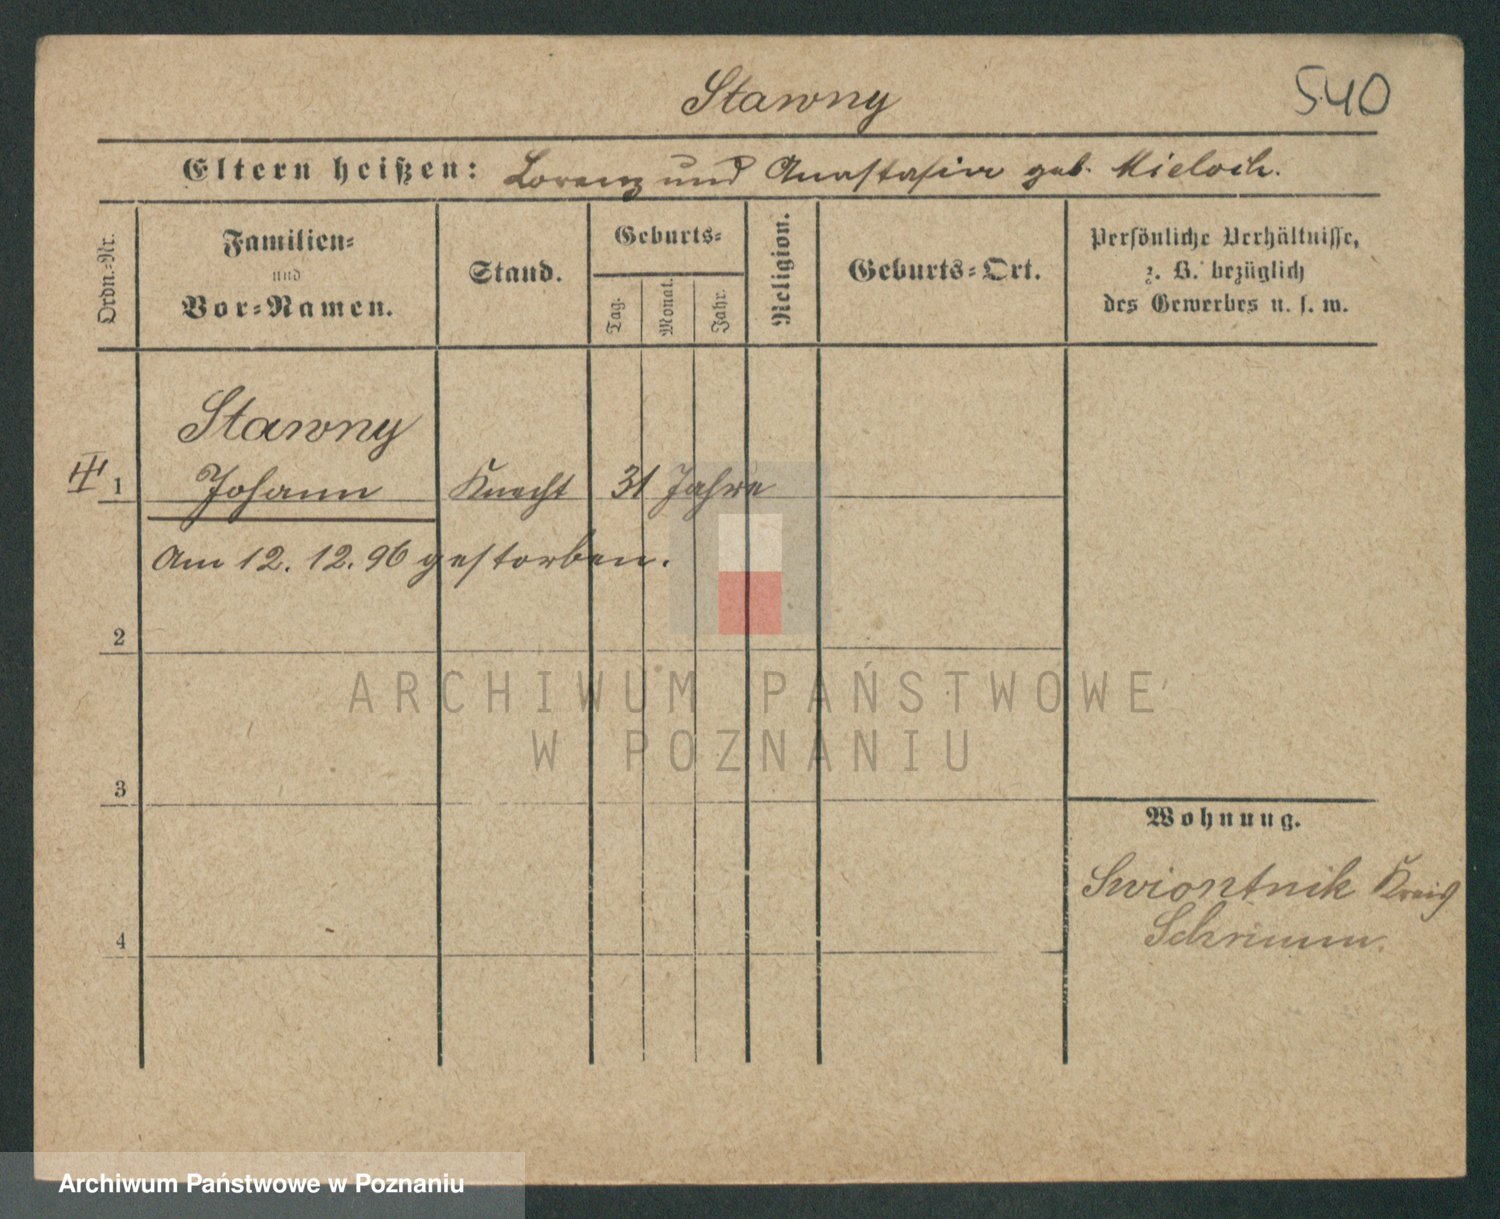 Stawny
540
Eltern heißen: Lorenz und Anastasia geb. Mieloch.
Ordn.-Nr.
Familien-
und
Vor-Namen.
Stand.
Geburts-
Tag.
Monat.
Jahr.
Religion.
Geburts-Ort.
Persönliche Verhältnisse,
z. B. bezüglich
des Gewerbes u. s. w.
Stawny
1 Johann Knecht 31 Jahre
Am 12. 12. 96 gestorben.
2
ARCHIWUM PAŃSTWOWE
W POZNANIU
3
Wohnung.
Swiontnik Kreis
Schrimm.
4
Archiwum Państwowe w Poznaniu